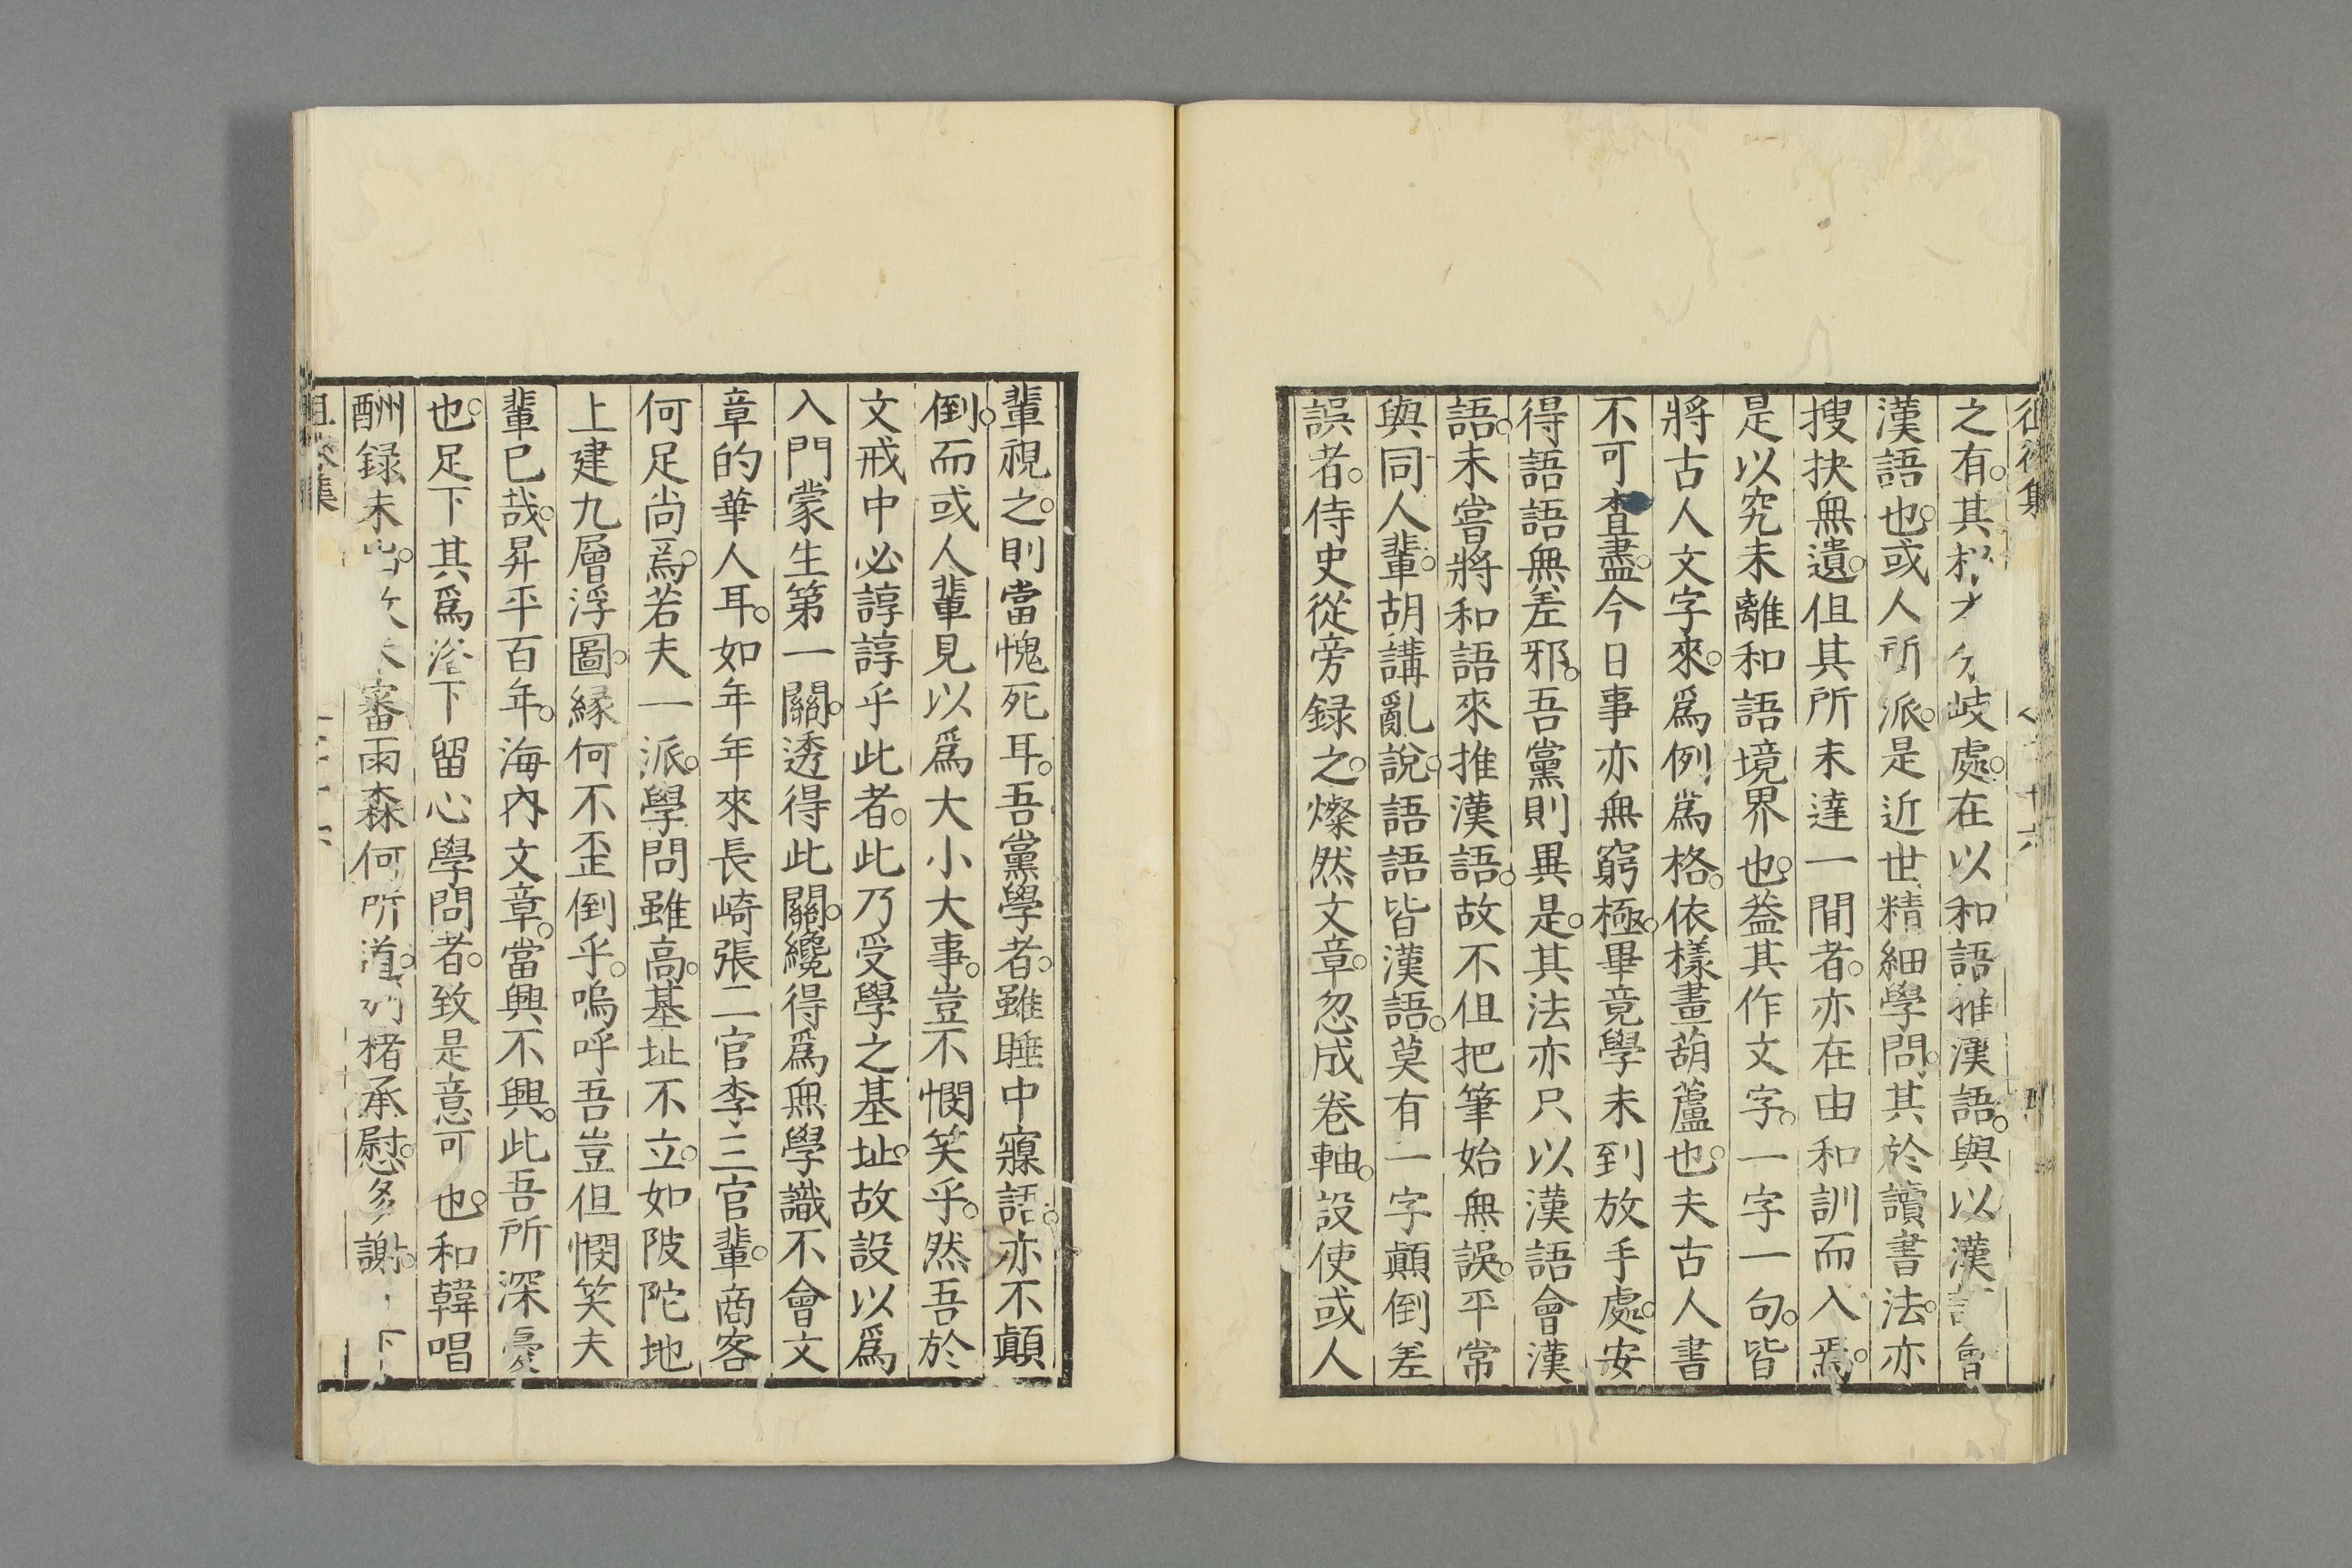 之有。其根分岐處。在以和語推漢語。與以漢語會
漢語也。或人所派。是近世精細學問。其於讀書法。亦
搜抉無遺。但其所未達一間者。亦在由和訓而入焉。
是以究未離和語境界也。益其作文字。一字一句。皆
將古人文字來。爲例爲格。依樣畫葫蘆也。夫古人書
不可查盡。今日事亦無窮極。畢竟學未到放手處。安
得語語無差邪。吾黨則異是。其法亦只以漢語會漢
語。未嘗將和語來推漢語。故不但把筆始無誤。平常
與同人輩。胡講亂說。語語皆漢語。莫有一字顚倒差
誤者。侍史從旁錄之。燦然文章。忽成卷軸。設使或人
輩視之。則當愧死耳。吾黨學者。雖睡中寱語。亦不顚
倒。而或人輩見以爲大小大事。豈不憫笑乎。然吾於
文戒中必諄諄乎此者。此乃受學之基址。故設以爲
入門蒙生第一關。透得此關。纔得爲無學識不會文
章的華人耳。如年年來長崎張二官李三官輩。商客
何足尚焉。若夫一派。學問雖高。基址不立。如陂陀地
上建九層浮圖。緣何不歪倒乎。嗚呼吾豈但憫笑夫
輩已哉。昇平百年。海內文章。當興不興。此吾所深憂
也。足下其爲 下留心學問者。致是意可也。和韓唱
酬錄未 審雨森何所道。 楮承慰。多謝。 下
徂徠集